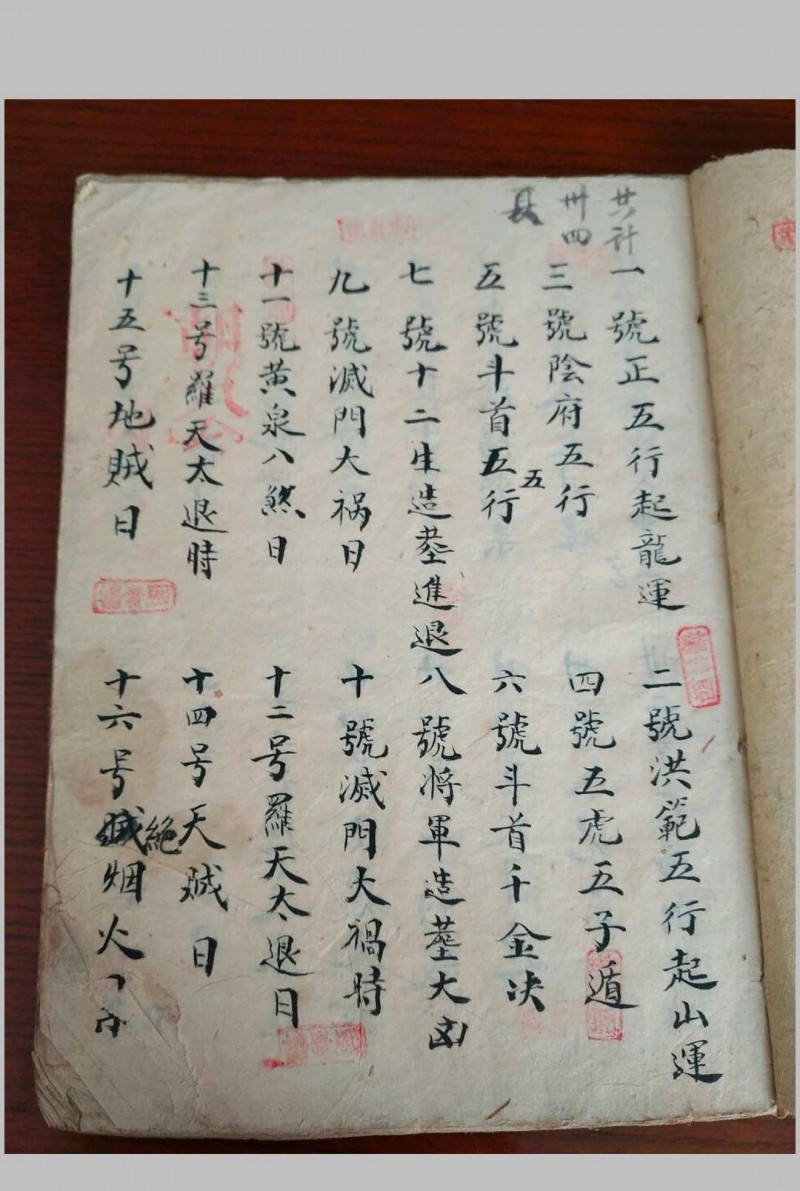 共计
卅四
一號正五行起龍運
二號洪範五行起山運
三號陰府五行
四號五虎五子遁
五號斗首五行
五
六號斗首千金决
七號十二生造塟進退
八號將軍造塟大凶
九號滅門大祸日
十號滅門大禍時
十一號黄泉八煞日
十二号羅天太退日
十三号羅天太退時
十四号天贼日
十五号地賊日
十六号絕烟火